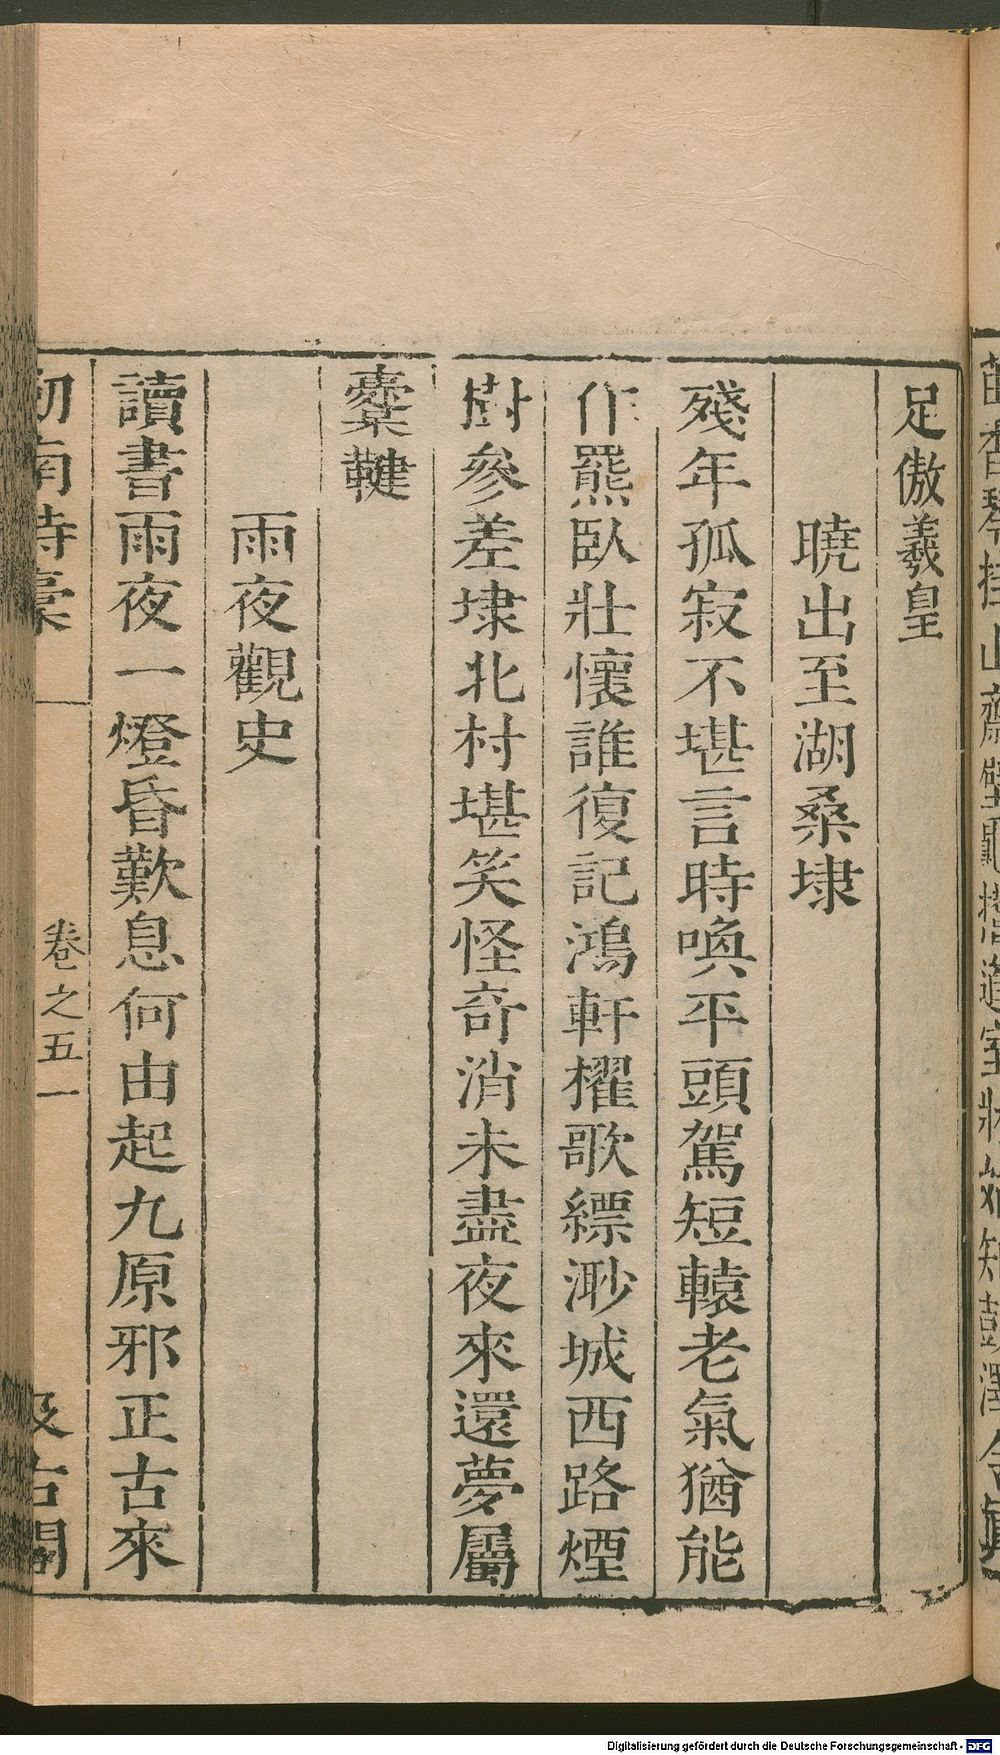 足傲羲皇
曉出至湖桑埭
殘年孤寂不堪言時喚平頭駕短轅老氣猶能
作羆臥壯懷誰復記鴻軒櫂歌縹渺城西路煙
樹參差埭北村堪笑怪奇消未盡夜來還夢屬
櫜鞬
雨夜觀史
讀書雨夜一燈昏歎息何由起九原邪正古來
劒南詩稾
卷之五一
汲古閣
Digitalisierung gefördert durch die Deutsche Forschungsgemeinschaft - DFG